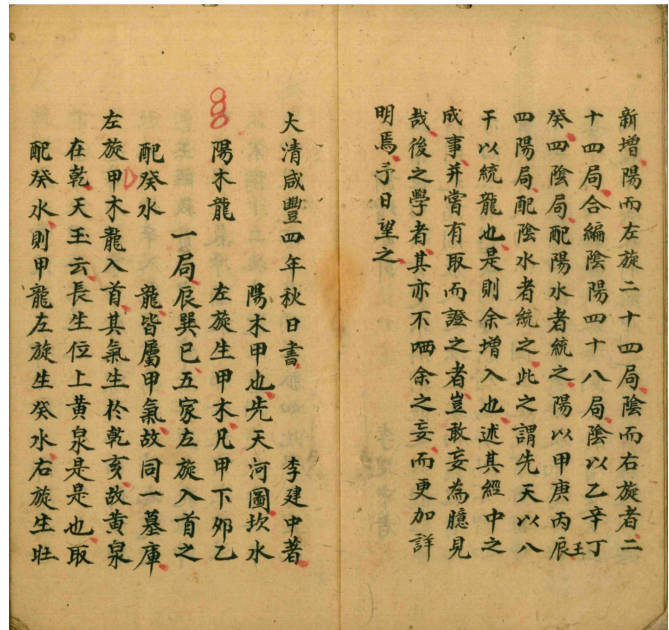 新增陽而左旋二十四局陰而右旋者二
十四局合編陰陽四十八局陰以乙辛丁
癸四陰局配陽水者統之陽以甲庚丙壬
四陽局配陰水者統之此之謂先天以八
干以統龍也是則余增入也述其經中之
成事并嘗有取而證之者豈敢妄為臆見
哉後之學者其亦不哂余之妄而更加詳
明焉予日望之
大清咸豐四年秋日書 李建中著
陽木甲也先天河圖坎水
陽木龍 左旋生甲木凡甲下夘乙
一局辰巽巳五家左旋入首之
配癸水 龍皆屬甲氣故同一墓庫
左旋甲木龍入首其氣生於乾亥故黃泉
在乾天玉云長生位上黃泉是是也取
配癸水則甲龍左旋生癸水右旋生旺